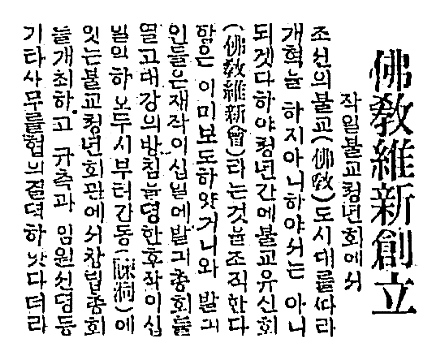 佛敎維新創立
작일불교청년회에서
조선의불교(佛敎)도시대를ᄯᅡ라
개혁을하지아니하야서는아니
되겟다하야청년간에불교유신회
(佛敎維新會)라는것을조직한다
함은이미보도하얏거니와발긔
인들은재작이십일에발긔총회를
열고대강의방침을뎡한후작이십
일일하오두시부터간동(諫洞)에
잇는불교청년회관에서창립총회
를개최하고규측과임원선뎡등
기타사무를협의결뎡하얏다더라